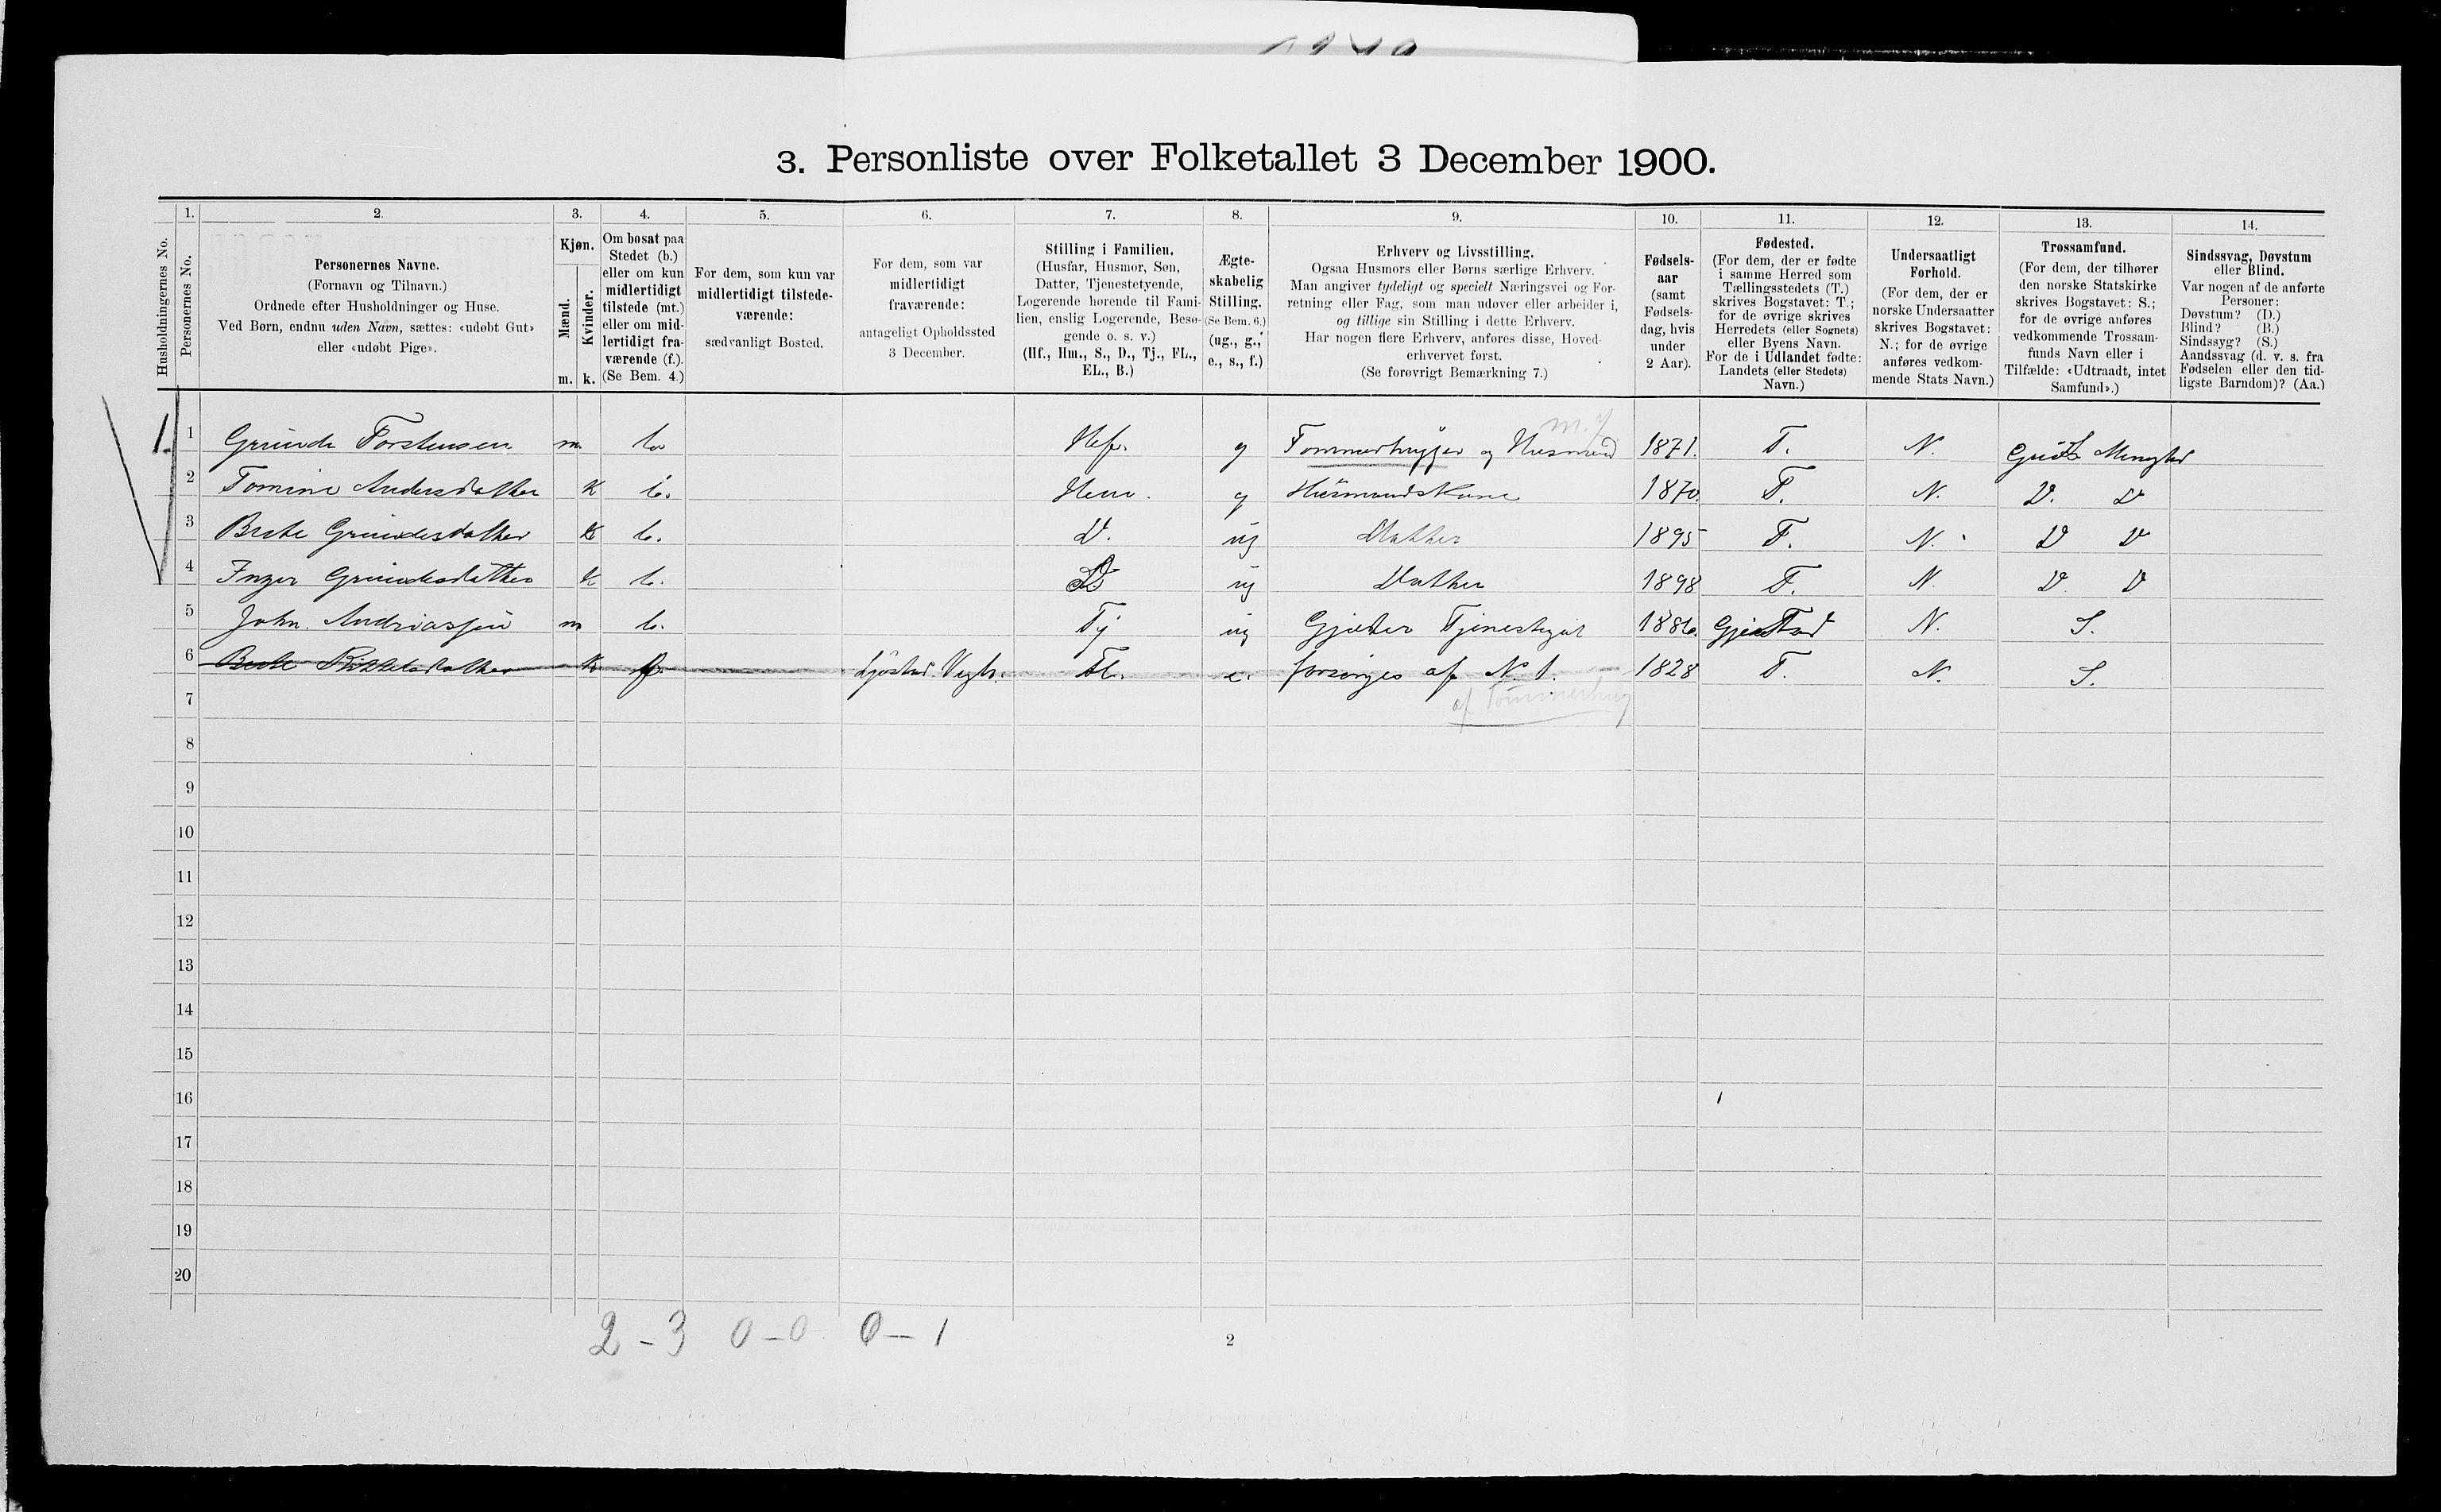 3. Personliste over Folketallet 3 December 1900.
Husholdningernes No.
1. Personernes No.
2. Personernes Navne.
(Fornavn og Tilnavn.)
Ordnede efter Husholdninger og Huse.
Ved Børn, endnu uden Navn, sættes: «udøbt Gut»
eller «udøbt Pige».
3. Kjøn.
Mænd. m.
Kvinder. k.
4. Om bosat paa
Stedet (b.)
eller om kun
midlertidigt
tilstede (mt.)
eller om mid-
lertidigt fra-
værende (f.).
(Se Bem. 4.)
5. For dem, som kun var
midlertidigt tilstede-
værende:
sædvanligt Bosted.
6. For dem, som var
midlertidigt
fraværende:
antageligt Opholdssted
3 December.
7. Stilling i Familien.
(Husfar, Husmor, Søn,
Datter, Tjenestetyende,
Logerende hørende til Fami-
lien, enslig Logerende, Besø-
gende o. s. v.)
(Hf., Hm., S., D., Tj., FL.,
EL., B.)
8. Ægte-
skabelig
Stilling.
(Se Bem. 6.)
(ug., g.,
e., s., f.)
9. Erhverv og Livsstilling.
Ogsaa Husmors eller Børns særlige Erhverv.
Man angiver tydeligt og specielt Næringsvei og For-
retning eller Fag, som man udøver eller arbeider i,
og tillige sin Stilling i dette Erhverv.
Har nogen flere Erhverv, anføres disse, Hoved-
erhvervet først.
(Se forøvrigt Bemærkning 7.)
10. Fødsels-
aar
(samt
Fødsels-
dag, hvis
under
2 Aar).
11. Fødested.
(For dem, der er fødte
i samme Herred som
Tællingsstedets (T.)
skrives Bogstavet: T.;
for de øvrige skrives
Herredets (eller Sognets)
eller Byens Navn.
For de i Udlandet fødte:
Landets (eller Stedets)
Navn.)
12. Undersaatligt
Forhold.
(For dem, der er
norske Undersaatter
skrives Bogstavet:
N.; for de øvrige
anføres vedkom-
mende Stats Navn.)
13. Trossamfund.
(For dem, der tilhører
den norske Statskirke
skrives Bogstavet: S.;
for de øvrige anføres
vedkommende Trossam-
funds Navn eller i
Tilfælde: «Udtraadt, intet
Samfund».)
14. Sindssvag, Døvstum
eller Blind.
Var nogen af de anførte
Personer:
Døvstum? (D.)
Blind? (B.)
Sindssyg? (S.)
Aandssvag (d. v. s. fra
Fødselen eller den tid-
ligste Barndom)? (Aa.)
1. 1 Grunde Torstensen m b. Hf. g Tømmerhugger og Husmand 1871. T. N. Guds Menighed
2 Tomine Andersdatter k b. Hm. g Husmandskone 1870. T. N. D. D
3 Berte Grundesdatter k b. D. ug Datter 1895 T. N. D D
4 Inger Grundesdatter k b. D ug Datter 1898 T. N. D D
5 John Andreassen m b. Tj ug Gjæter Tjenestegut 1886. Gjerstad N. S.
6 Berte k f. Vegh. Fl. e. forsørges af N. 1. 1828 T. N. S.
af Tømmerhug
7
8
9
10
11
12
13
14
15
16
17
18
19
20
2 - 3 0 - 0 0 - 1
2